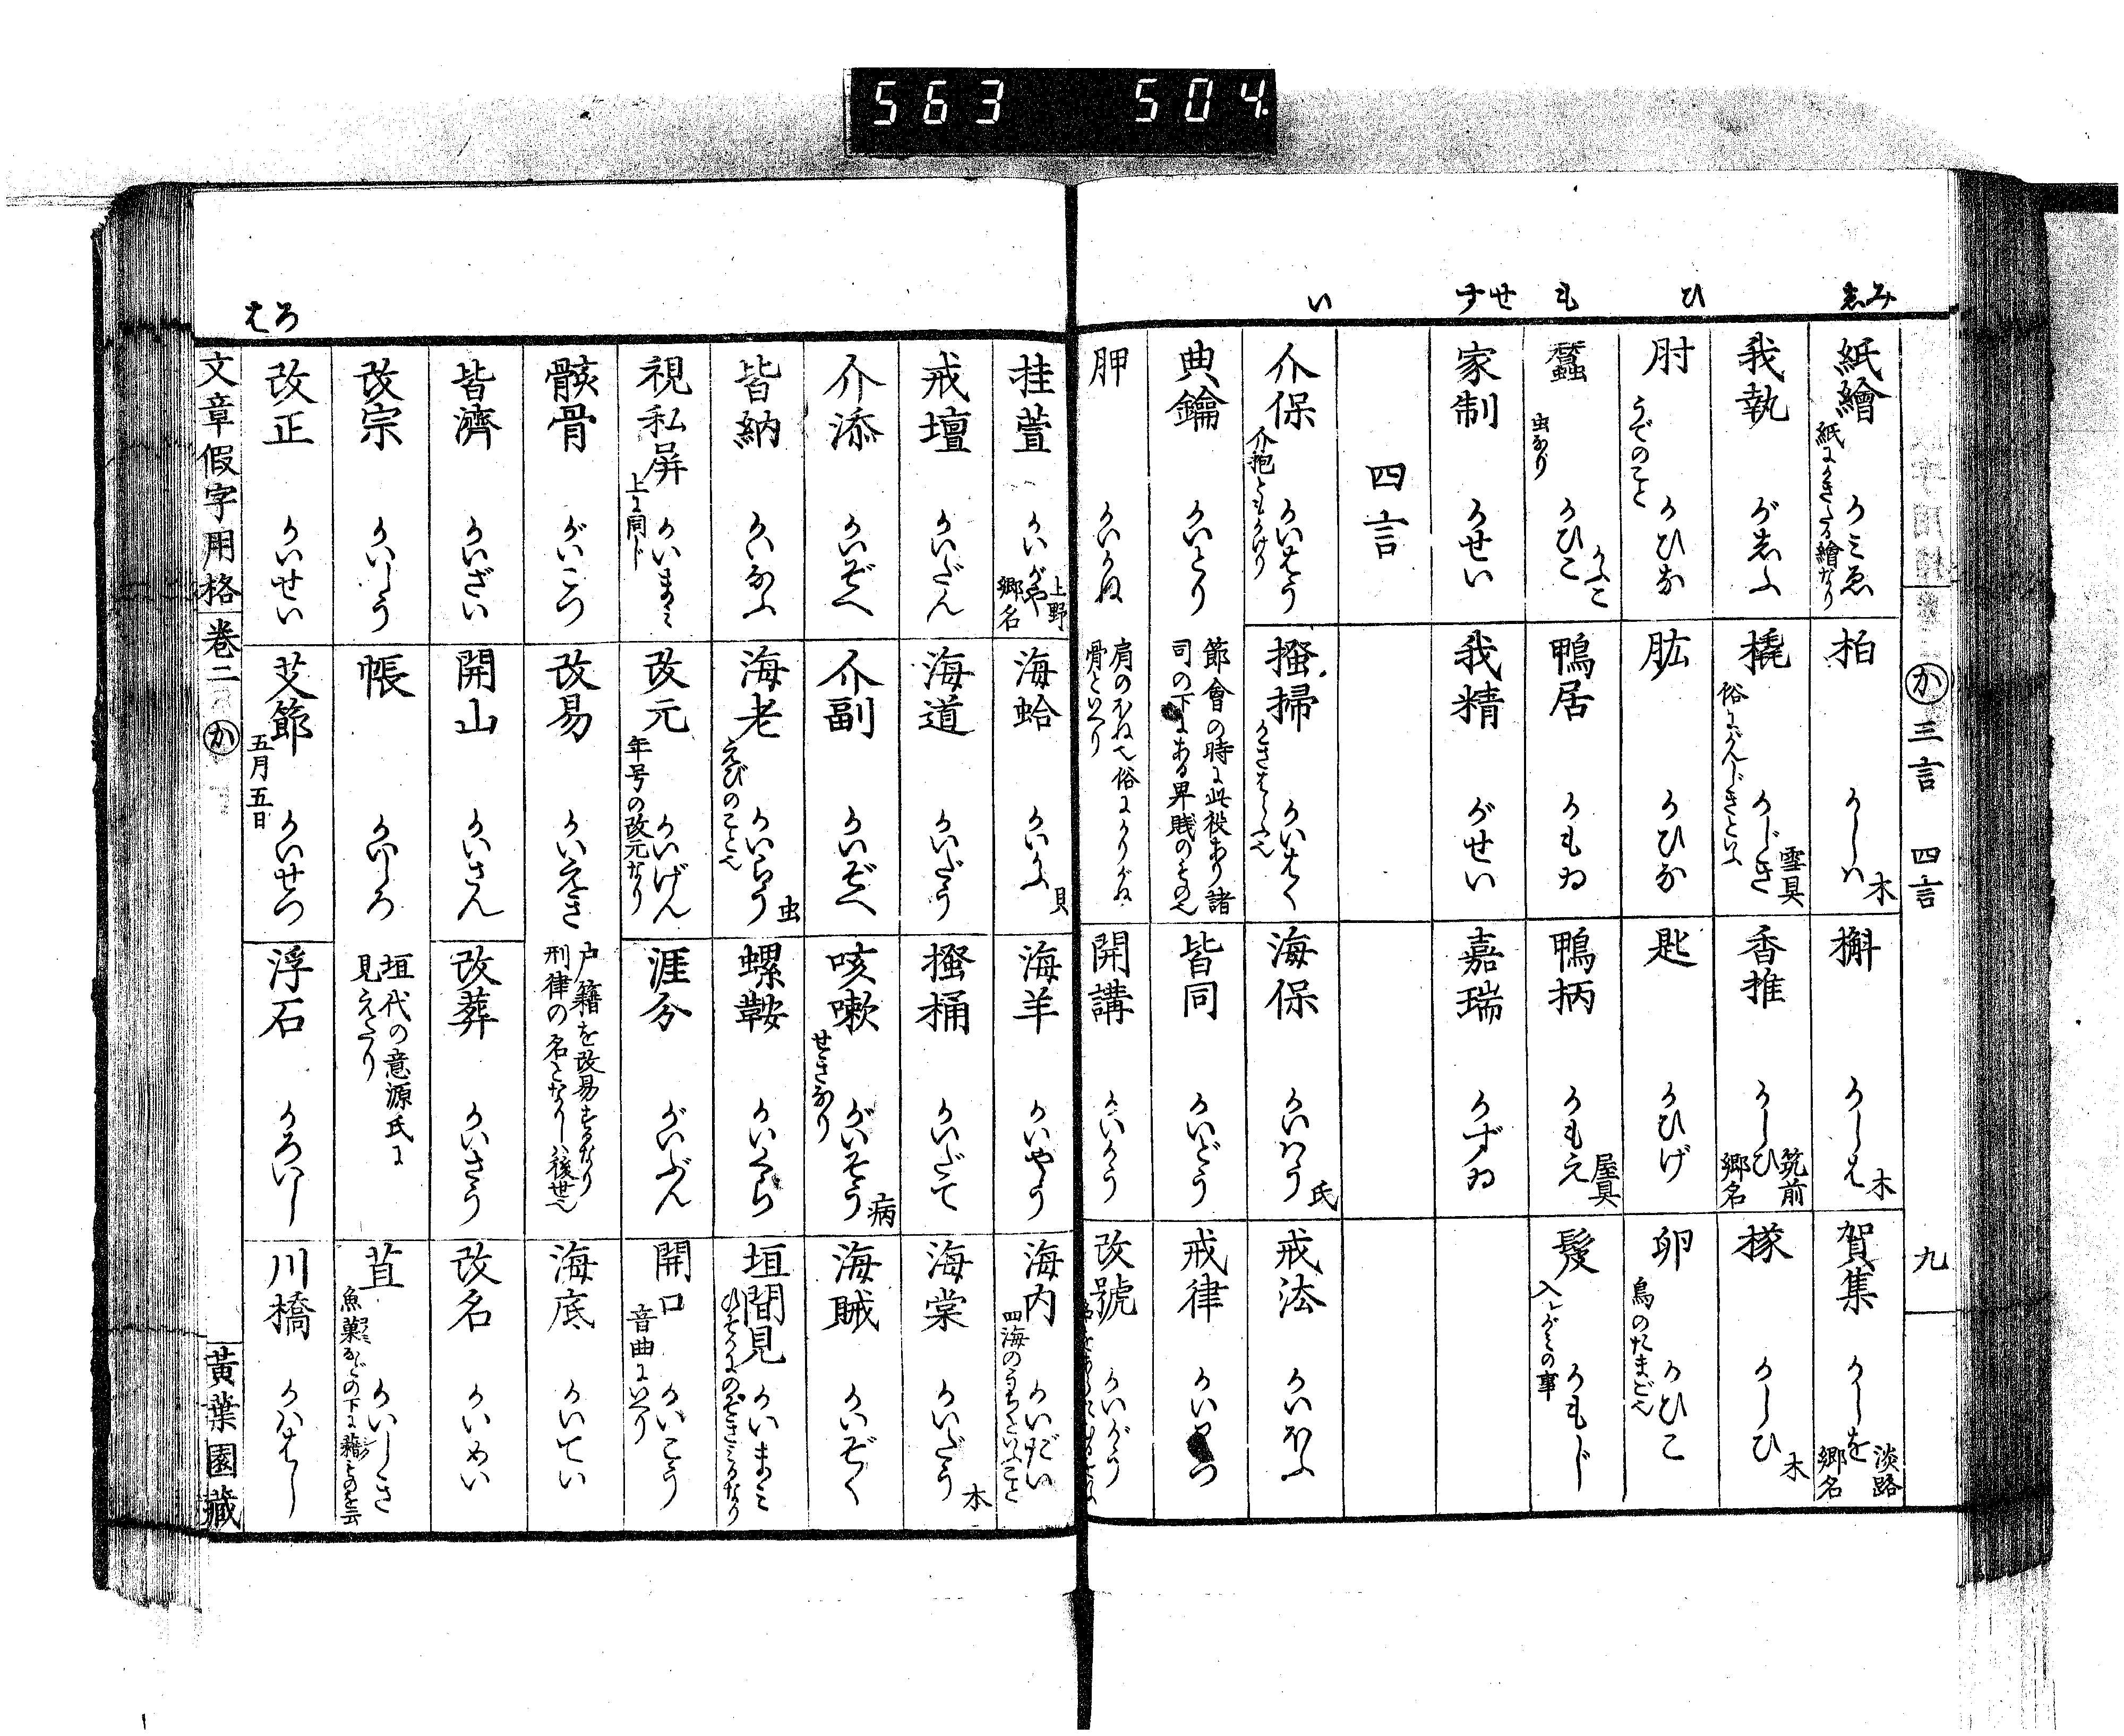 563 504.
みゑ ひ も せす い
か 三言 四言 九
紙繪 かみゑ 紙にかきたる繪なり
柏 かしハ 木
槲 かしは 木
賀集 かしを 淡路郷名
我執 がゑふ
橇 かじき 雪具 俗にかんじきといふ
香推 かしひ 筑前郷名
樣 かしひ 木
肘 かひな うでのこと
肱 かひな
匙 かひげ
卵 かひこ 鳥のたまご也
蠶 かひこ かふこ 虫なり
鴨居 かもゐ
鴨柄 かもえ 屋具
髲 かもじ 入レがミの事
家制 かせい
我精 がせい
嘉瑞 かずゐ
四言
介保 かいはう 介抱ともかけり
搔掃 かいはく かきはらふ也
海保 かいハう 氏
戒法 かいほふ
典鑰 かいとり 節會の時に此役あり諸司の下にある卑賎のもの也
皆同 かいどう
戒律 かいりつ
胛 かいかね 肩のほね也俗にかりがね骨といへり
開講 かいかう
改號 かいがう
挂萱 かいがや 上野郷名
海蛤 かいかふ 貝
海羊 かいやう
海内 かいだい 四海のうちといふこと
戒壇 かいだん
海道 かいだう
搔桶 かいだて
海棠 かいだう 木
介添 かいぞへ
介副 かいぞへ
咳嗽 がいそう 病 せきなり
海賊 かいぞく
皆納 かいなふ
海老 かいらう 虫 えびのこと也
螺鞍 かいくら
垣間見 かいまみ ひそかにのぞきミるなり
視私屏 かいまミ 上に同じ
改元 かいげん 年号の改元なり
涯分 がいぶん
開口 かいこう 音曲にいへり
骸骨 がいこつ
改易 かいえき 戸籍を改易するなり刑律の名となりしハ後世也
海底 かいてい
皆濟 かいざい
開山 かいさん
改葬 かいさう
改名 かいめい
改宗 かいしう
帳 かいしろ 垣代の意源氏に見えたり
苴 かいしき 魚菓などの下に藉ものを云
改正 かいせい
艾節 かいせつ 五月五日
浮石 かろいし
川橋 かはばし
ろは
文章假字用格 卷二 か 黃葉園藏